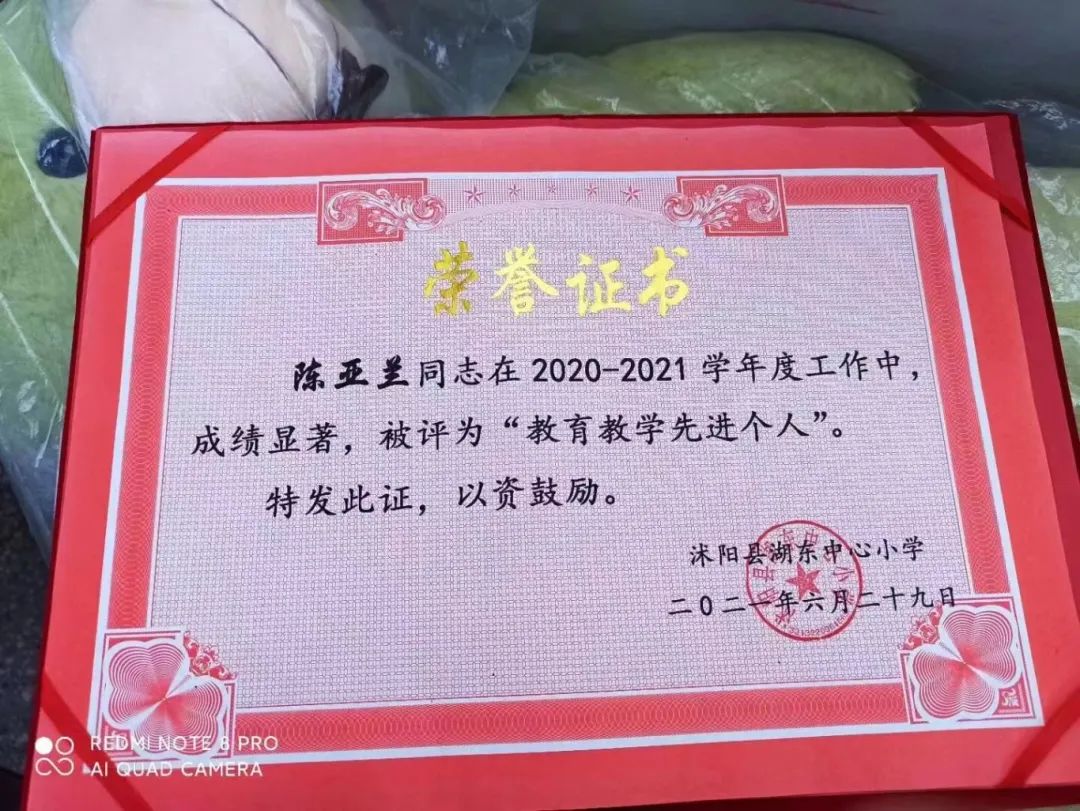 荣誉证书
陈亚兰同志在2020-2021学年度工作中，
成绩显著，被评为“教育教学先进个人”。
特发此证，以资鼓励。
沭阳县湖东中心小学
二〇二一年六月二十九日
REDMI NOTE 8 PRO
AI QUAD CAMERA